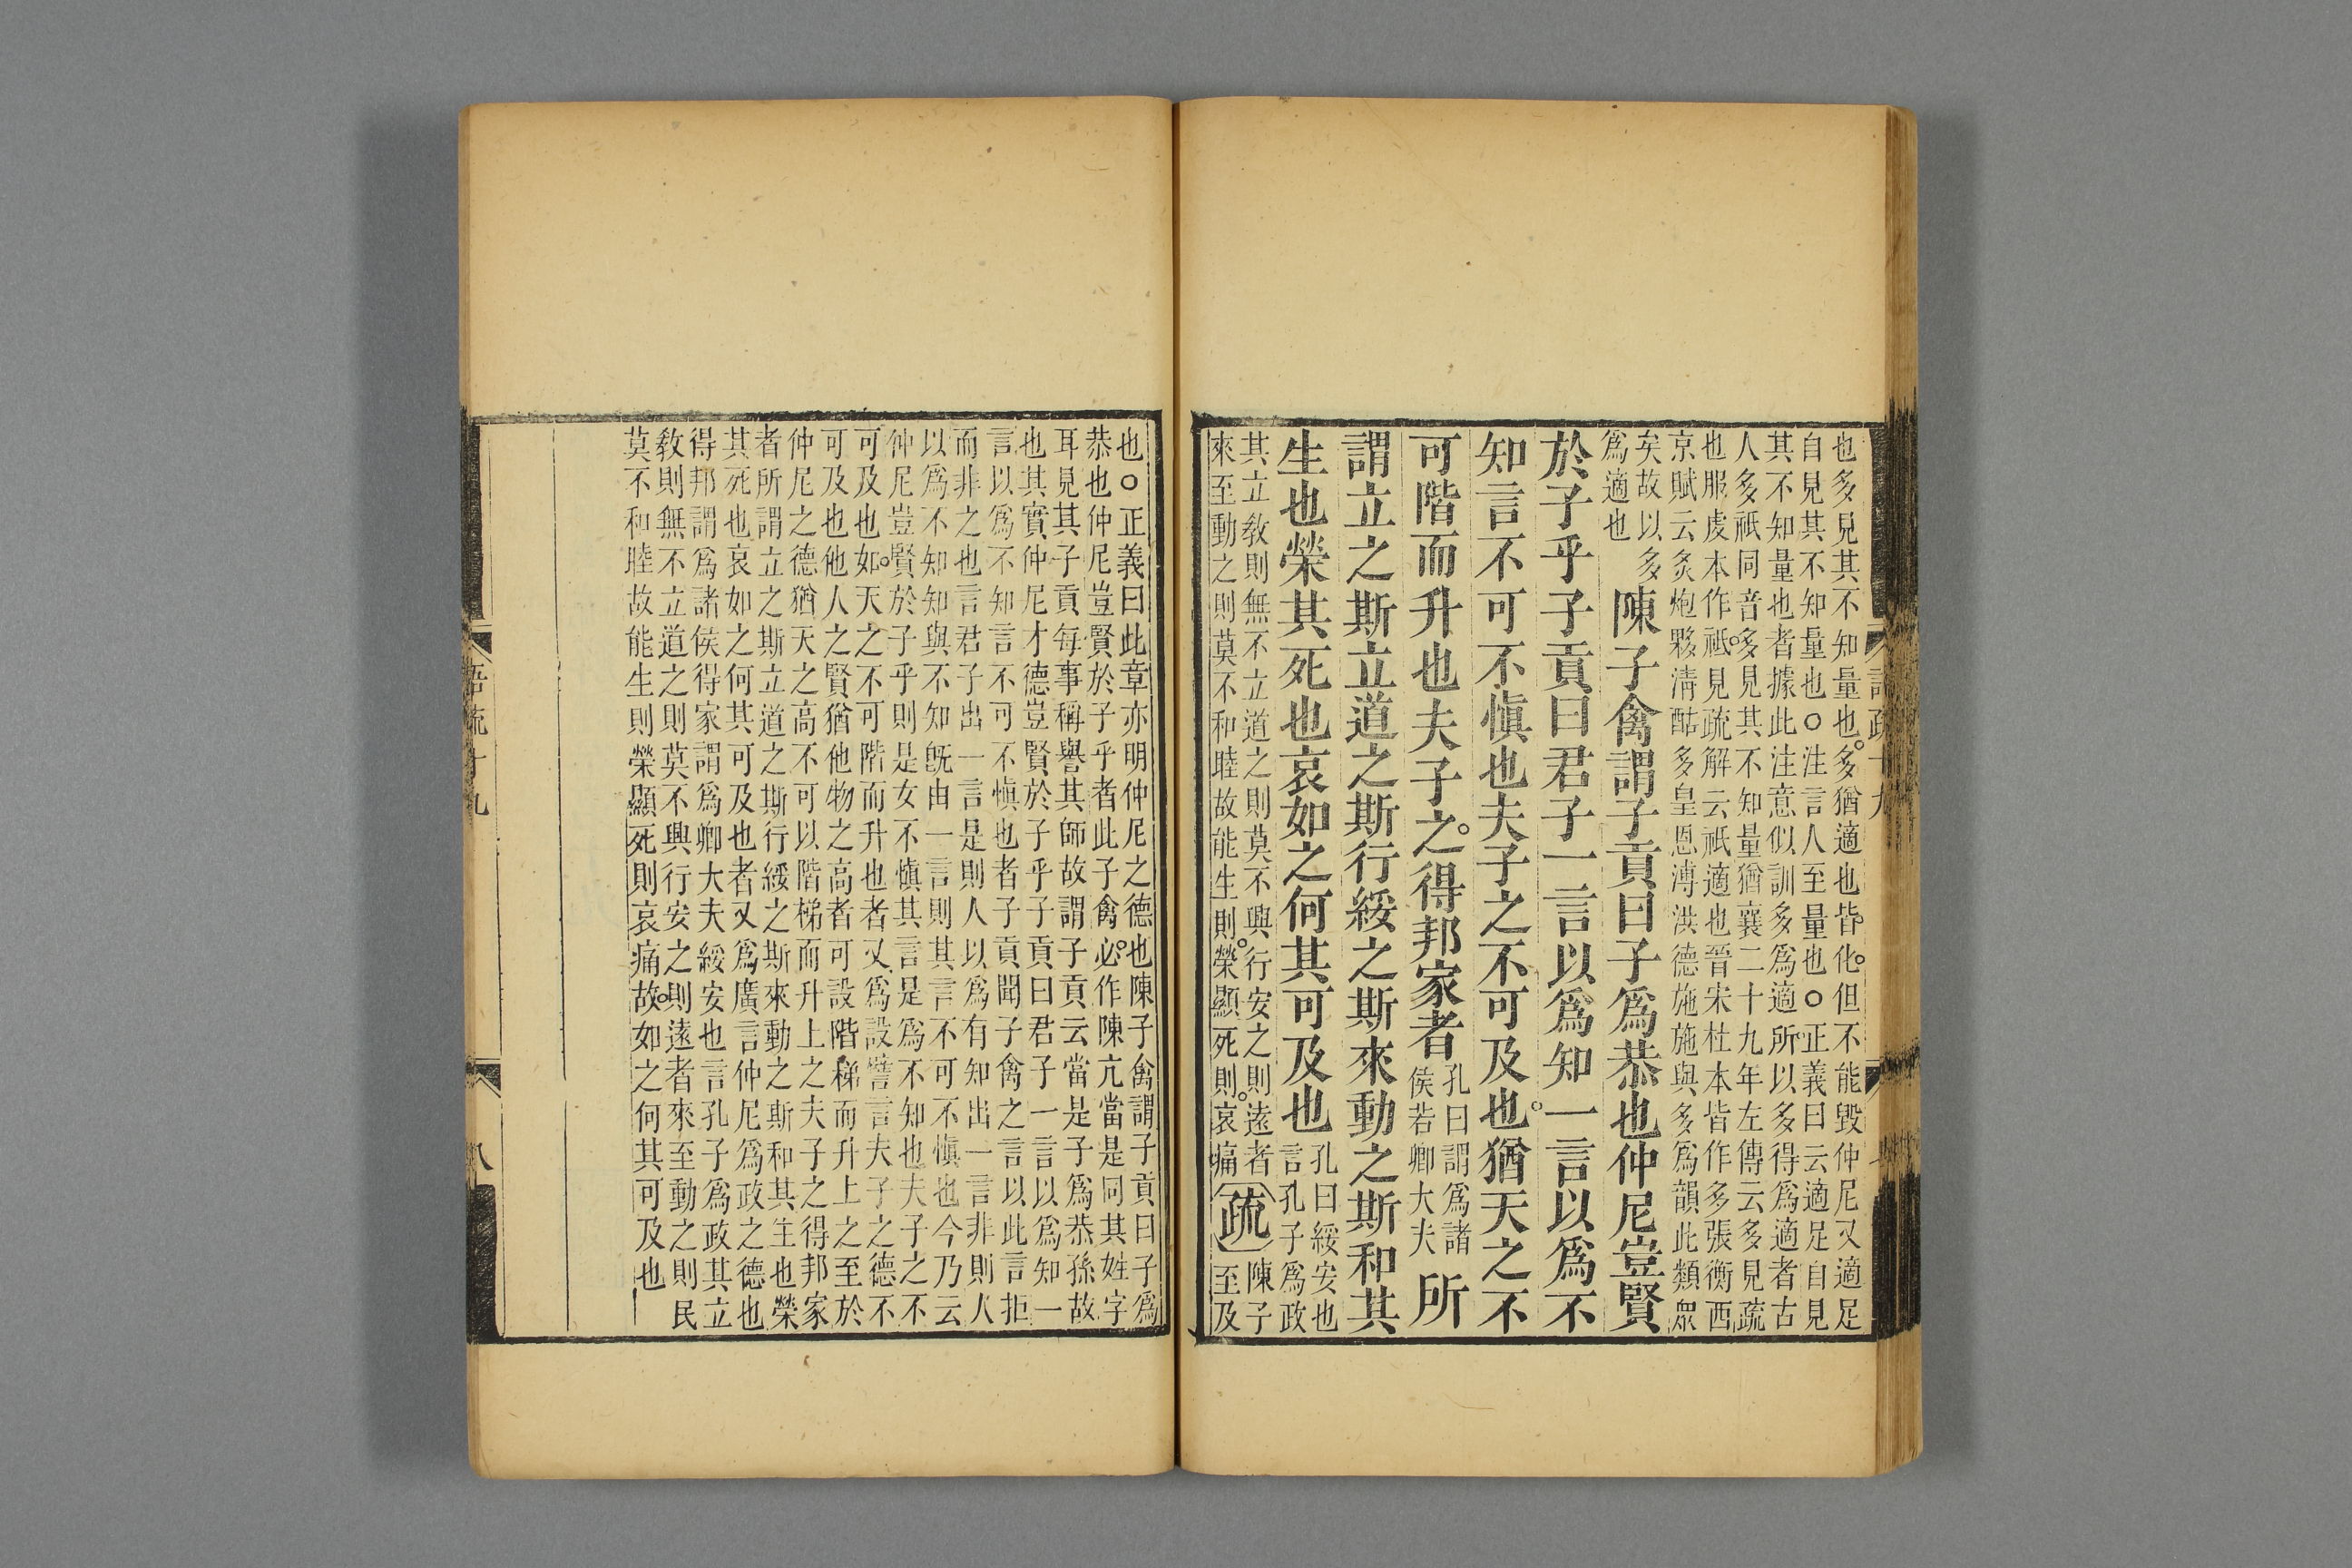 也多見其不知量也多猶適也皆化但不能毀仲尼又適足
自見其不知量也○注言人至量也○正義曰云適足自見
其不知量也者據此注意似訓多為適所以多得為適者古
人多祇同音多見其不知量猶襄二十九年左傳云多見疏
也服虔本作祇見疏解云祇適也晉宋杜本皆作多張衡西
京賦云炙炮夥清酤多皇恩溥洪德施施與多為韻此類衆
矣故以多
為適也
陳子禽謂子貢曰子爲恭也仲尼豈賢
於子乎子貢曰君子一言以爲知一言以爲不
知言不可不慎也夫子之不可及也猶天之不
可階而升也夫子之得邦家者
孔曰謂爲諸
侯若卿大夫
所
謂立之斯立道之斯行綏之斯來動之斯和其
生也榮其死也哀如之何其可及也
孔曰綏安也
言孔子爲政
其立教則無不立道之則莫不興行安之則遠者
來至動之則莫不和睦故能生則榮顯死則哀痛
疏
陳子
至及
也○正義曰此章亦明仲尼之德也陳子禽謂子貢曰子爲
恭也仲尼豈賢於子乎者此子禽必作陳亢當是同其姓字
耳見其子貢每事稱譽其師故謂子貢云當是子爲恭孫故
也其實仲尼才德豈賢於子乎子貢曰君子一言以爲知一
言以爲不知言不可不慎也者子貢聞子禽之言以此言拒
而非之也言君子出一言是則人以爲有知出一言非則人
以爲不知知與不知既由一言則其言不可不慎也今乃云
仲尼豈賢於子乎則是女不慎其言是爲不知也夫子之不
可及也如天之不可階而升也者又爲設譬言夫子之德不
可及也他人之賢猶他物之高者可設階梯而升上之至於
仲尼之德猶天之高不可以階梯而升上之夫子之得邦家
者所謂立之斯立道之斯行綏之斯來動之斯和其生也榮
其死也哀如之何其可及也者又爲廣言仲尼爲政之德也
得邦謂爲諸侯得家謂爲卿大夫綏安也言孔子爲政其立
敎則無不立道之則莫不興行安之則遠者來至動之則民
莫不和睦故能生則榮顯死則哀痛故如之何其可及也
語疏十九
八